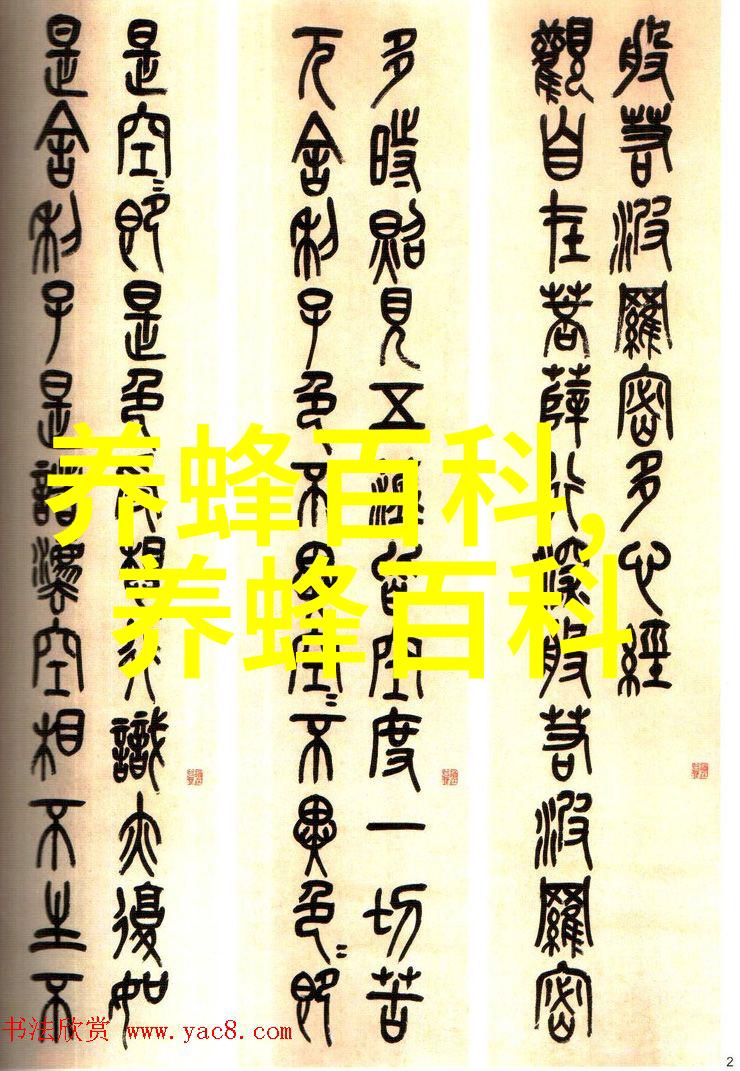 般若波羅密多心經
觀自在菩薩行深般若波羅密
多時照見五蘊皆空度一切苦
厄舍利子色不異空〻不異色〻即
是空〻即是色受想行識亦復如
是舍利子是諸法空相不生不
养蜂百科,
养蜂百科
书法欣赏 www.yac8.com
2